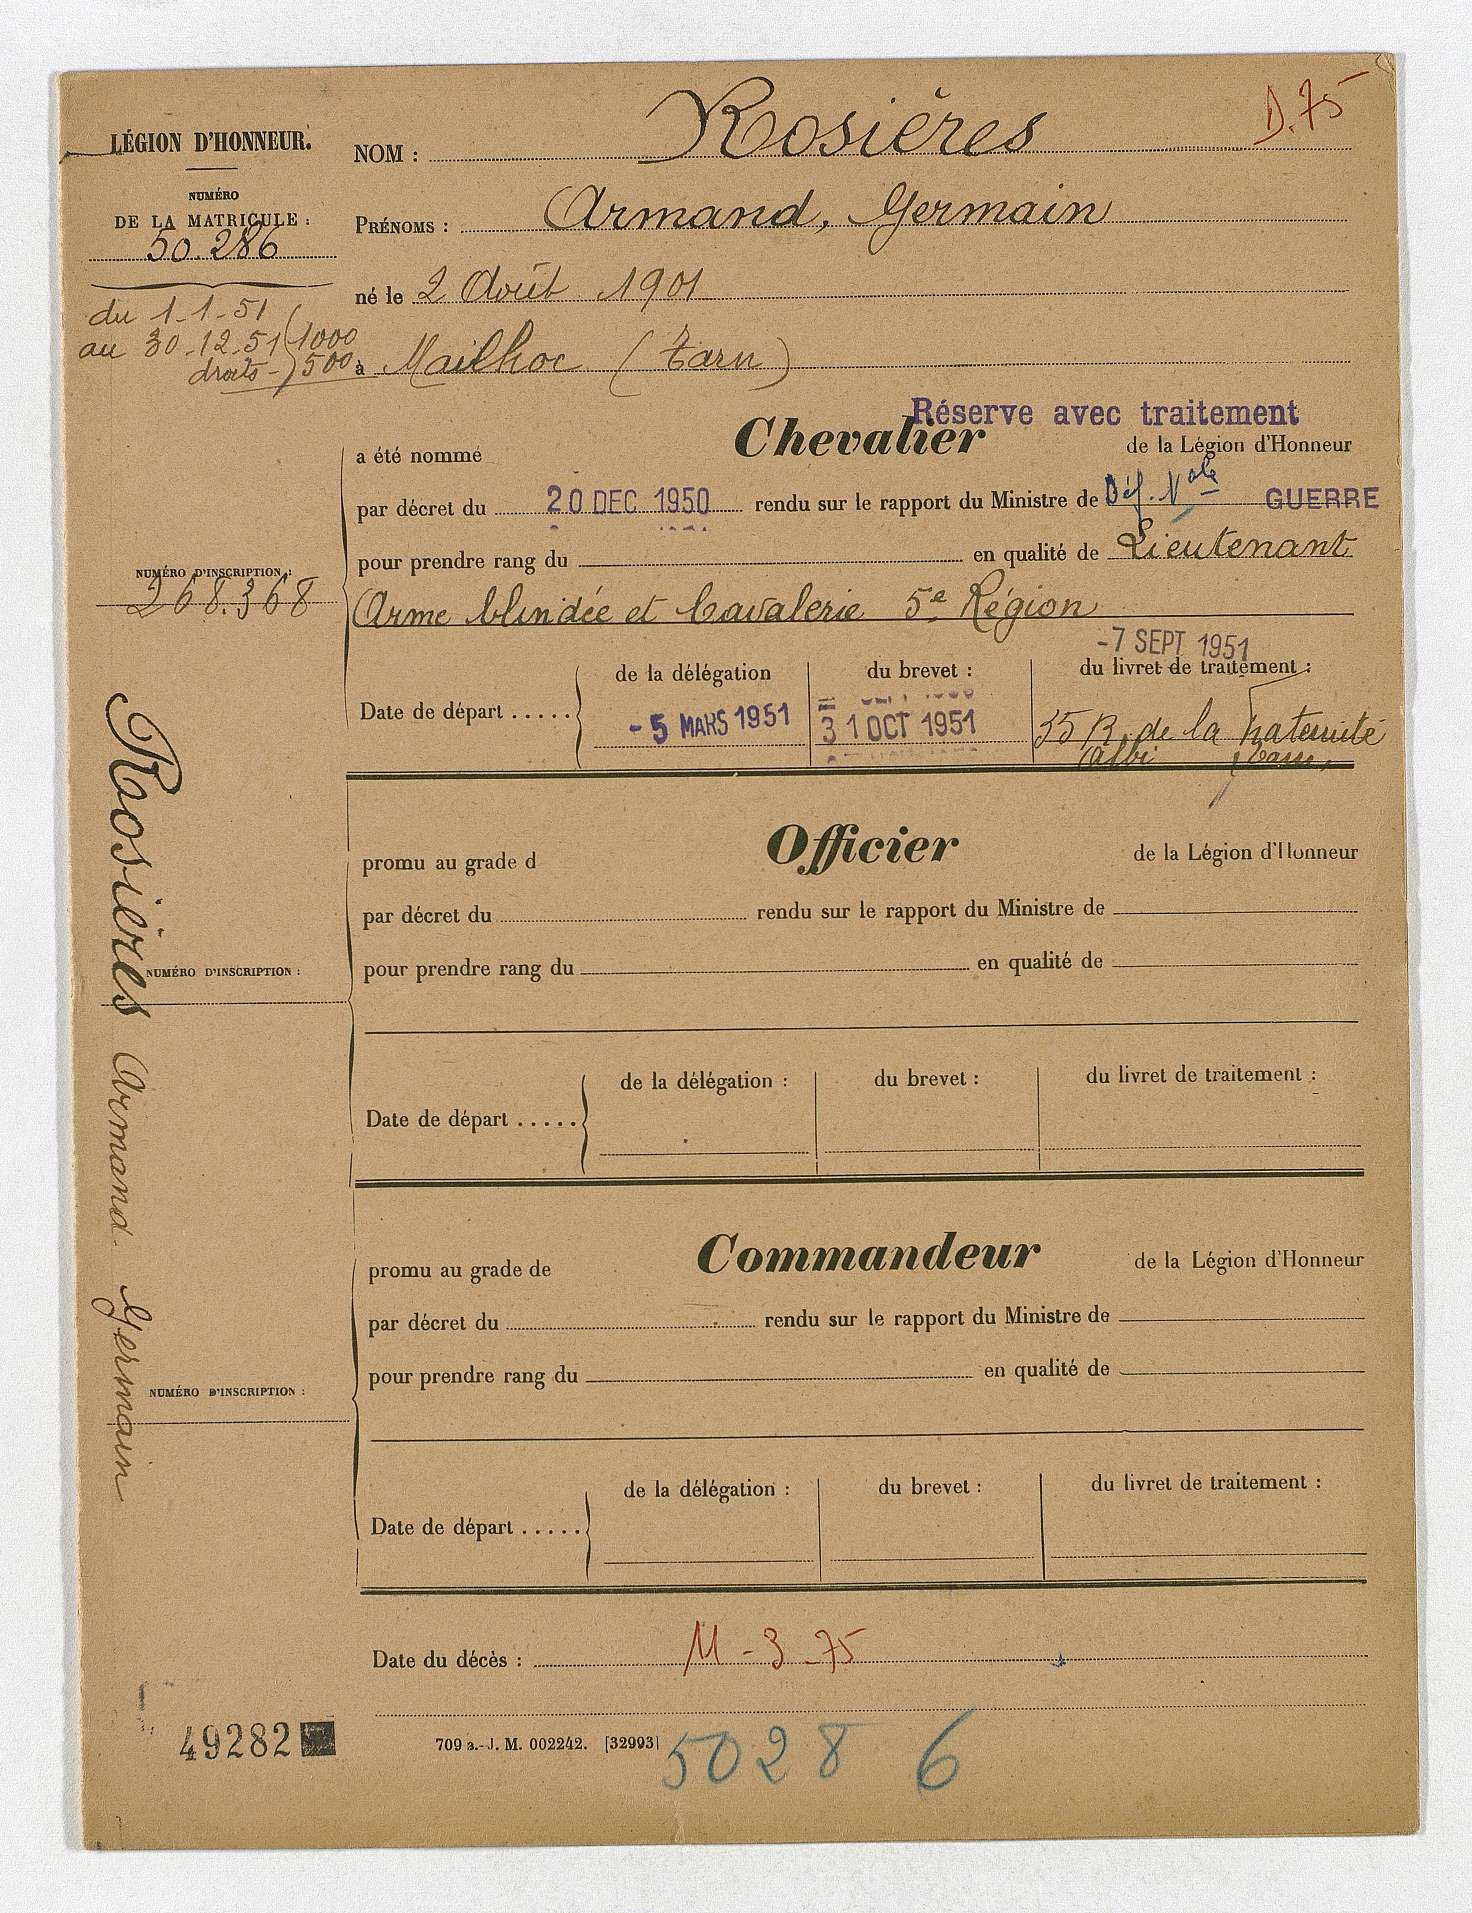 D.75
LÉGION D'HONNEUR.
NUMÉRO
DE LA MATRICULE :
50.286
du 1-1-51
au 30-12-51 1000
droits - 500
NOM : Rosières
PRÉNOMS : Armand, Germain
né le 2 Août 1901
à Mailhoc (Tarn)
Réserve avec traitement
a été nommé Chevalier de la Légion d'Honneur
par décret du 20 DEC 1950 rendu sur le rapport du Ministre de Déf. Nale GUERRE
pour prendre rang du en qualité de Lieutenant
NUMÉRO D'INSCRIPTION :
268.368
Arme blindée et Cavalerie 5e Région
-7 SEPT 1951
de la délégation du brevet : du livret de traitement :
Date de départ ..... - 5 MARS 1951 31 OCT 1951 35 R. de la Fraternité
Albi Tarn
promu au grade d Officier de la Légion d'Honneur
par décret du rendu sur le rapport du Ministre de
pour prendre rang du en qualité de
NUMÉRO D'INSCRIPTION :
de la délégation : du brevet : du livret de traitement :
Date de départ .....
promu au grade de Commandeur de la Légion d'Honneur
par décret du rendu sur le rapport du Ministre de
pour prendre rang du en qualité de
NUMÉRO D'INSCRIPTION :
de la délégation : du brevet : du livret de traitement :
Date de départ .....
Rosières Armand Germain
Date du décès : 11-3-75
49282
709 a.-J. M. 002242. [32993]
50286